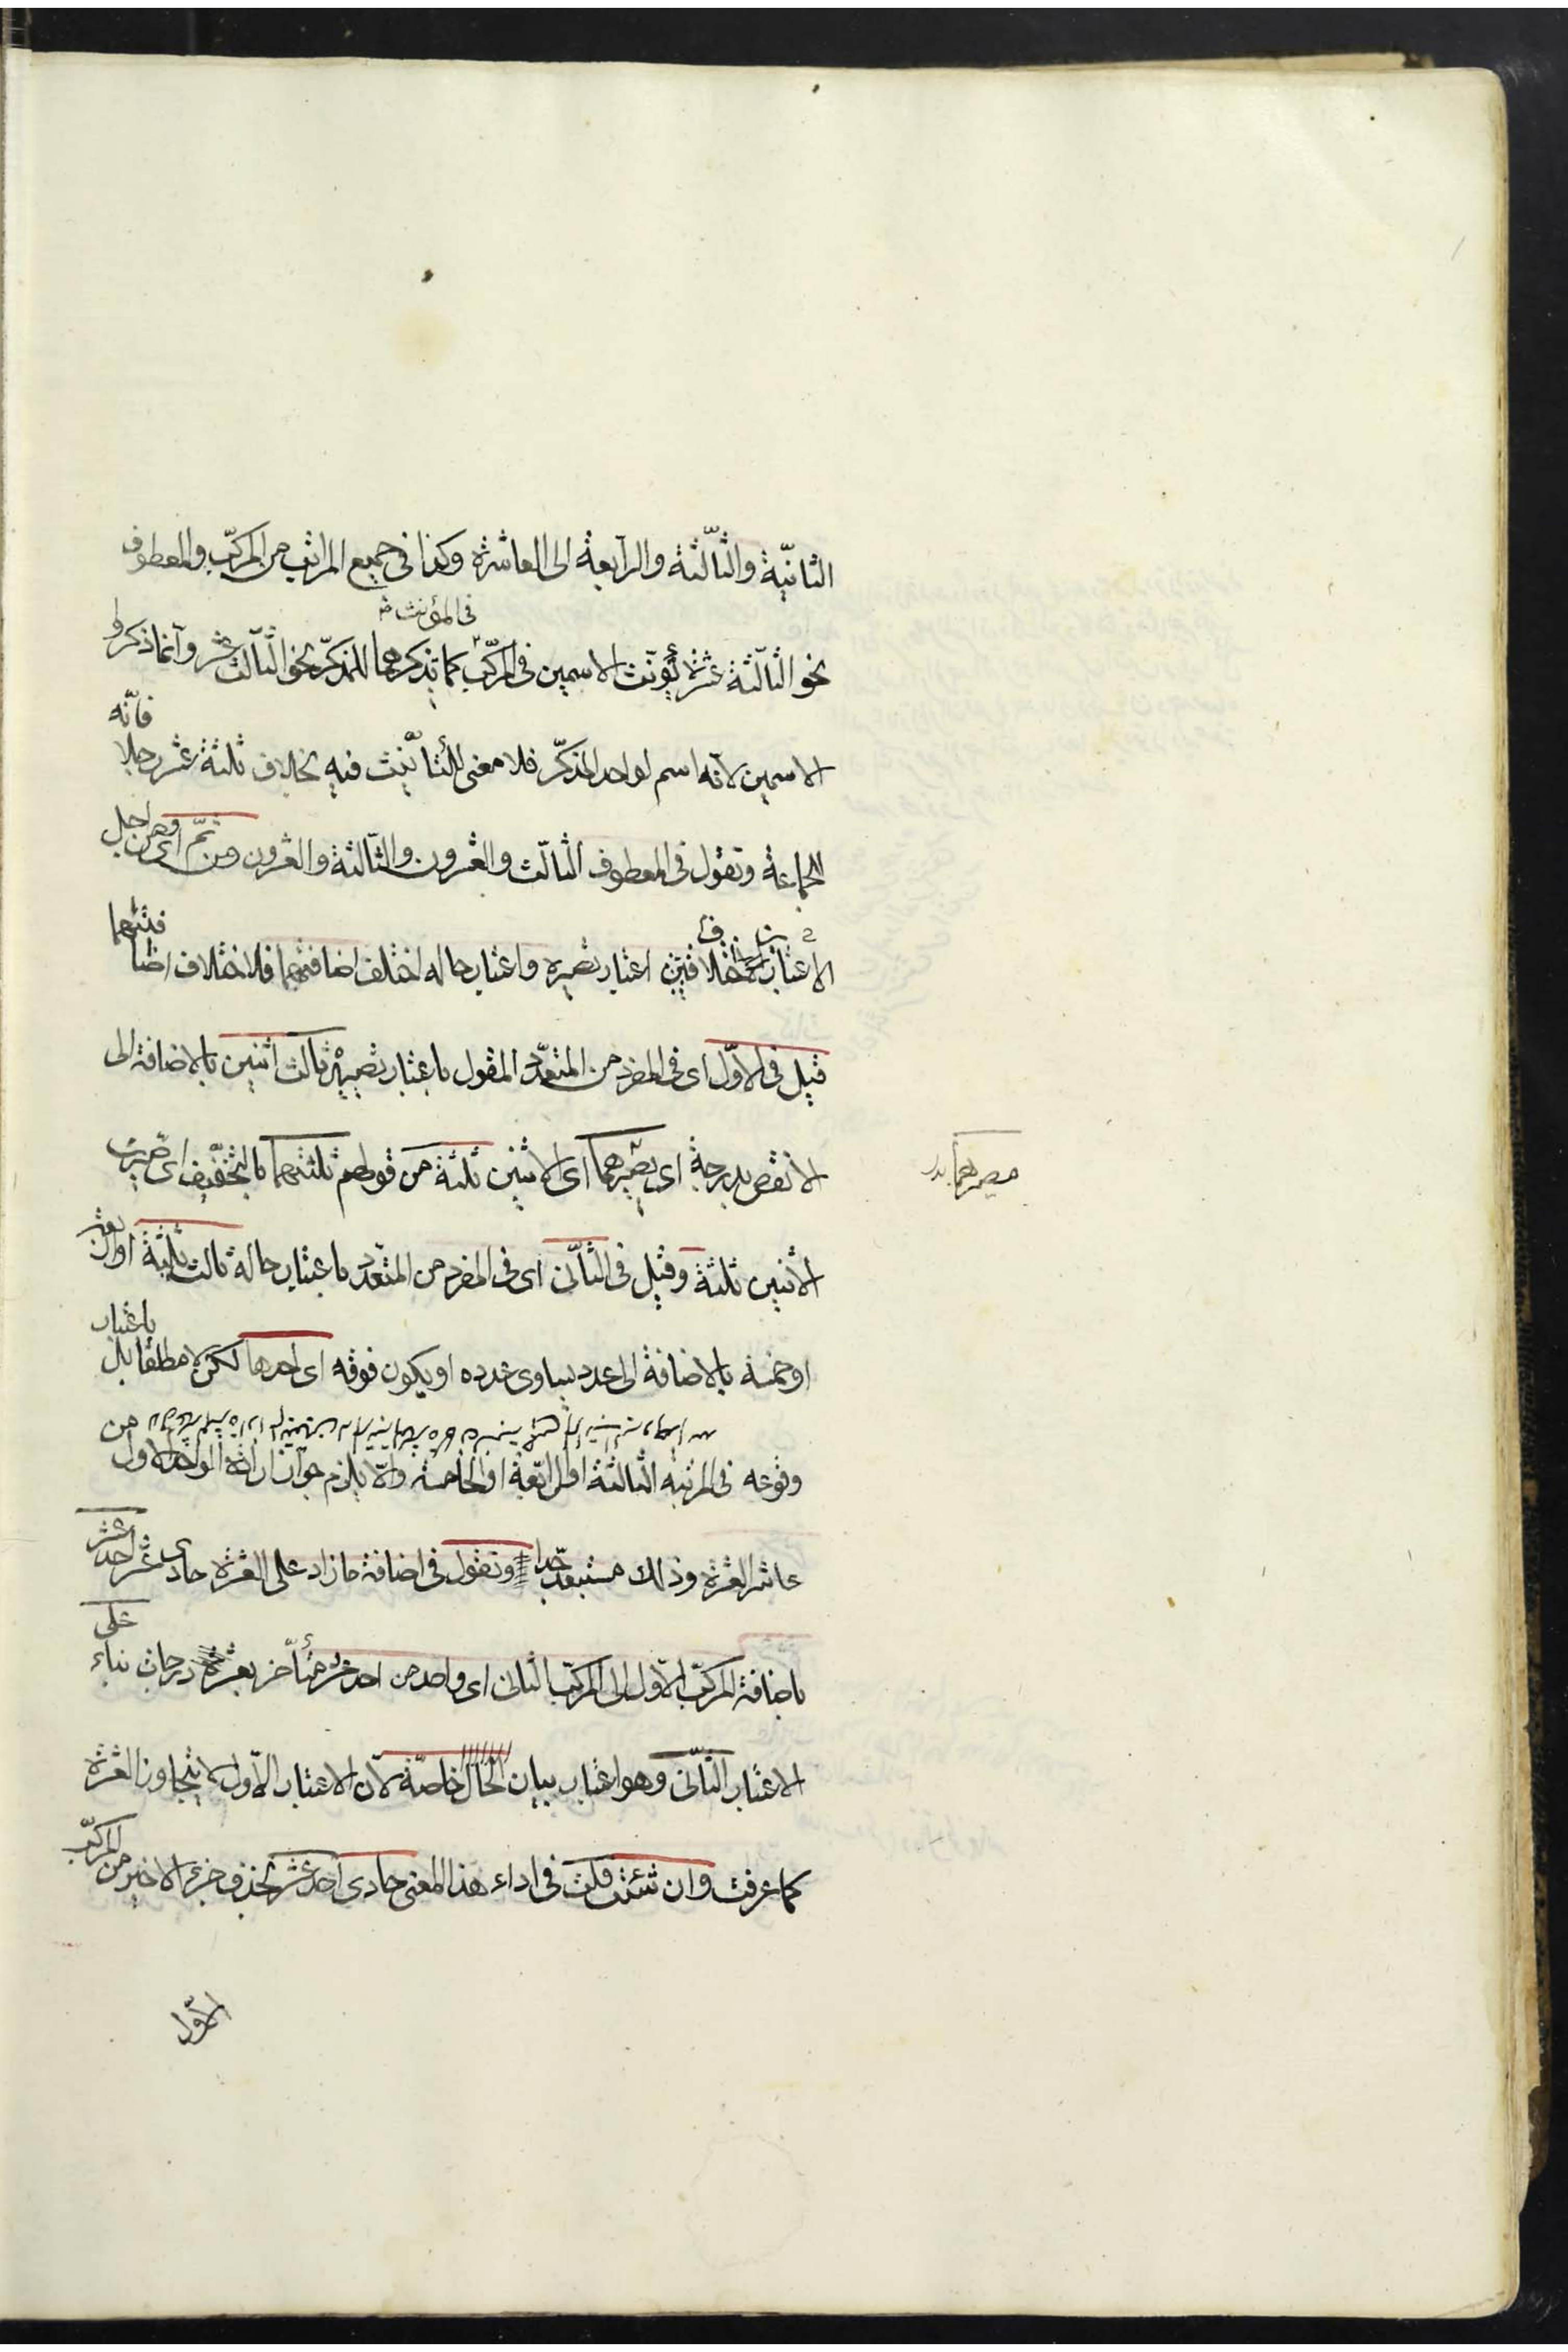 الثانية والثالثة والرابعة الى العاشرة وكذا فى جميع المراتب من المركب والمعطوف
فى المؤنث
نحو الثالثة عشرة يؤنث الاسمين فى المركب كما تذكرهما للمذكر نحو الثالث عشر وانما ذكروا
الاسمين لانه اسم لواحد المذكر فلا معنى للتأنيث فيه بخلاف ثلثة عشر رجلا فانه
للجماعة وتقول فى المعطوف الثالث والعشرون والثالثة والعشرون ومن ثم اى ومن اجل
الاعتبار اختلافين اعتبار تصيره واعتبار حاله اختلف اضافتهما فلاختلاف اضافتهما
قيل فى الاول اى فى المفرد من المتعدد المقول باعتبار تصييره ثالث اثنين بالاضافة الى
الانقص بدرجة اى يصيرهما اى الاثنين ثلثة من قولهم ثلثتهما بالتخفيف اى صيرت
مصيرهما
الاثنين ثلثة وقيل فى الثانى اى فى المفرد من المتعدد باعتبار حاله ثالث ثلثة او اربعة
او خمسة بالاضافة الى عدد يساوى عدده او يكون فوقه اى احدها لكن لا مطلقا بل باعتبار
وقوعه فى المرتبه الثالثة او الرابعة او الخامسة والا يلزم جواز ارادة الواحد الاول من
عاشر العشرة وذلك مستبعد جدا وتقول فى اضافة ما زاد على العشرة حادى عشر احد عشر
باضافة المركب الاول الى المركب الثانى اى واحد من احد عشر متأخر بعشرة درجات بناء على
الاعتبار الثانى وهو اعتبار بيان الحال خاصة لان الاعتبار الاول لا يتجاوز العشرة
كما عرفت وان شئت قلت فى اداء هذا المعنى حادى احد عشر بحذف جزء الاخير من المركب
الاول